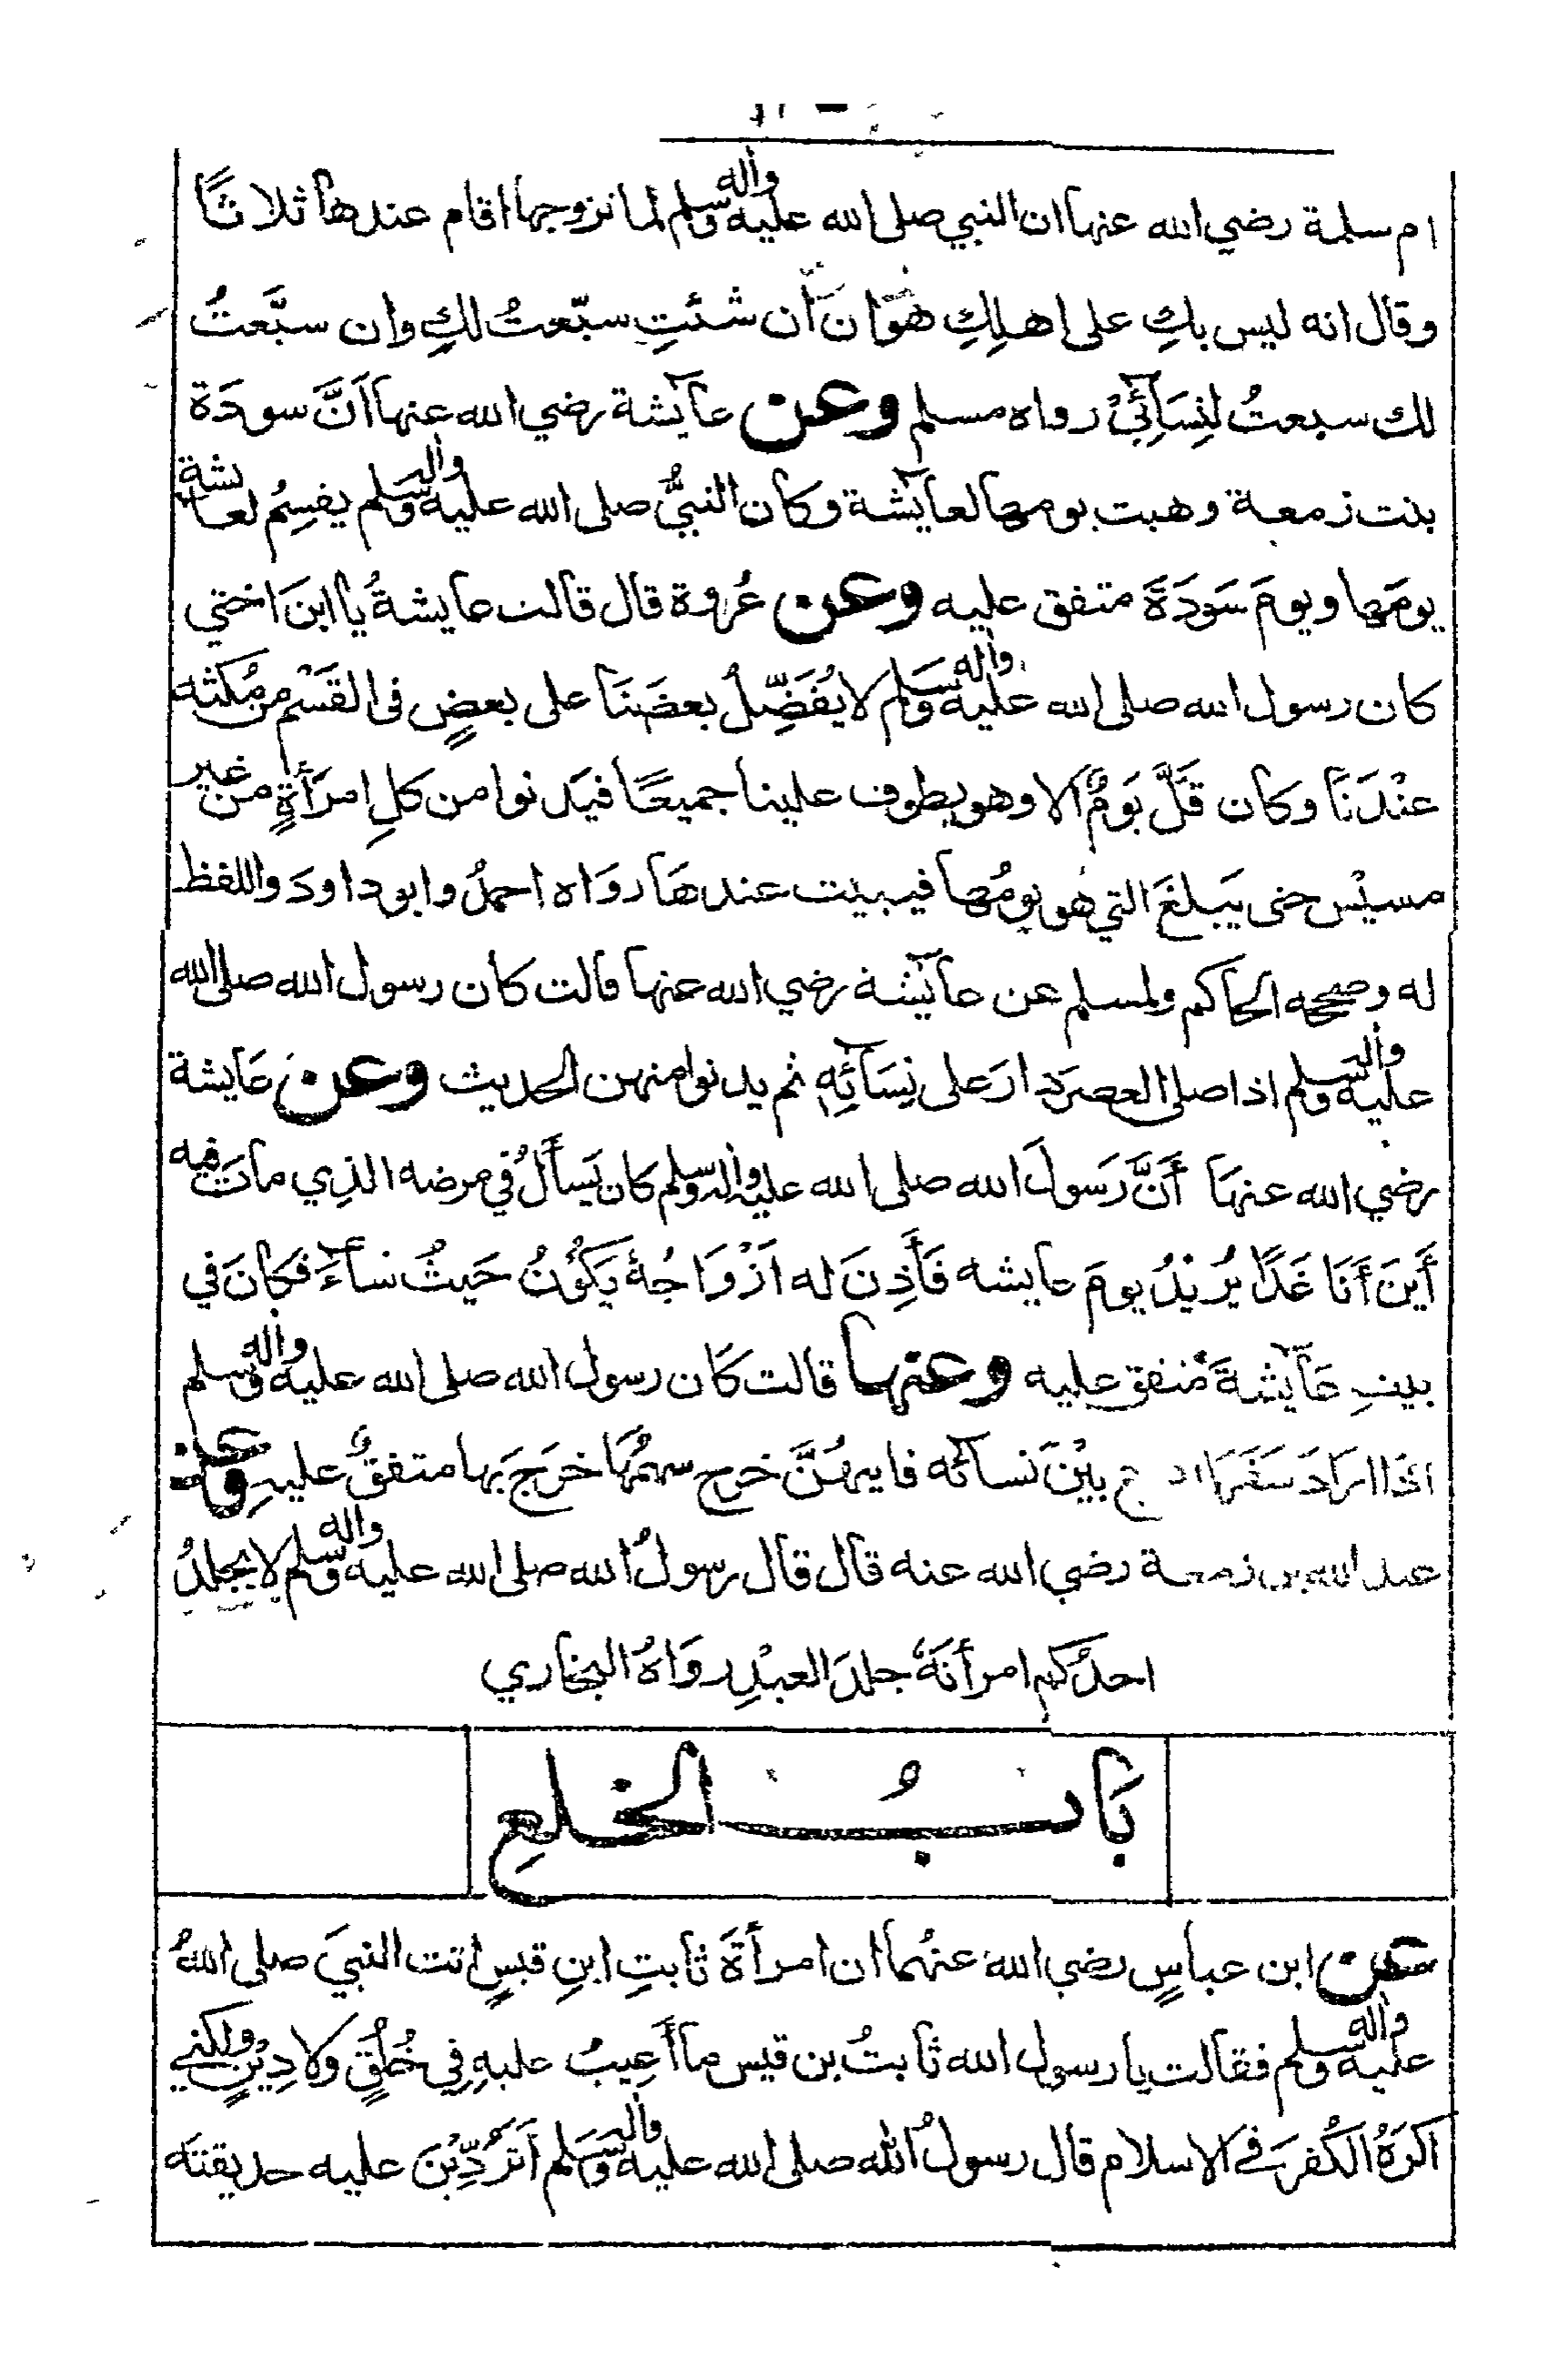 ام سلمة رضي الله عنها ان النبي صلى الله عليه واله وسلم لما تزوجها اقام عندها ثلاثًا
وقال انه ليس بكِ على اهلِكِ هَوَان اَن شئتِ سبّعتُ لكِ وان سبَّعتُ
لك سبعتُ لنِسَآئِيْ رواه مسلم وعن عآيشة رضي الله عنها اَنَّ سودَة
بنت زمعة وهبت يومها لعآيشة وكان النبيُّ صلى الله عليه واله وسلم يقسِمُ لعايشة
يومَها ويومَ سَودَةَ متفق عليه وعن عُروة قال قالت عايشةُ يا ابنَ اختي
كان رسول الله صلى الله عليه واله وسلم لا يُفَضِّلُ بعضَنَا على بعضٍ فى القَسْمِ من مُكثه
عنْدَنَا وكان قَلَّ يَومٌ اَلا وهو يطوف علينا جميعًا فيَدنوا من كلِ امرَأَةٍ من غير
مسيْس حتى يَبلغَ التي هو يومُها فيبيت عندهَا روَاه احمدُ وابو داودَ واللفظ
له وصححه الحاكم ولمسلم عن عآيشة رضي الله عنها قالت كان رسول الله صلى الله
عليه واله وسلم اذا صلى العصرَ دارَ على نِسَآئِهِ ثم يدنوا منهن الحديث وعن عَايشة
رضي الله عنهَا أَنَّ رَسولَ الله صلى الله عليه واله وسلم كان يَسأَلُ في مرضه الذِي ماتَ فيه
أَينَ أَنَا غَدًا يُريْدُ يومَ عايشه فَأَذِنَ له اَزْوَاجُهُ يَكوُنُ حَيثُ شآءَ فكَانَ في
بيتِ عَآيشةَ متفق عليه وعنها قالت كَان رسول الله صلى الله عليه واله وسلم
اذا اَرَادَ سَفَرًا بيْنَ نسآئه فايهُنَّ خرج سهمُهَا خرَجَ بَها متفقٌ عليهِ وعن
عبد الله بن زمعة رضي الله عنه قال قال رسولُ الله صلى الله عليه واله وسلم لا يجلدُ
احدُكم امرأتَهُ جلدَ العبْدِ روَاهُ البخاري
بَابُ الخلعِ
عن ابن عباسٍ رضي الله عنهُما ان امرأةَ ثابتِ ابنِ قيسٍ اتت النبيَ صلى اللهُ
عليه واله وسلم فقالت يا رسول الله ثابتُ بن قيس ما أَعِيبُ عليهِ فِي خُلُقٍ ولا دِيْنٍ ولكني
اكرَهُ الكُفرَ في الاسلام قال رسولُ الله صلى الله عليه واله وسلم اَتَرُدِّيْنَ عليه حديقتَه